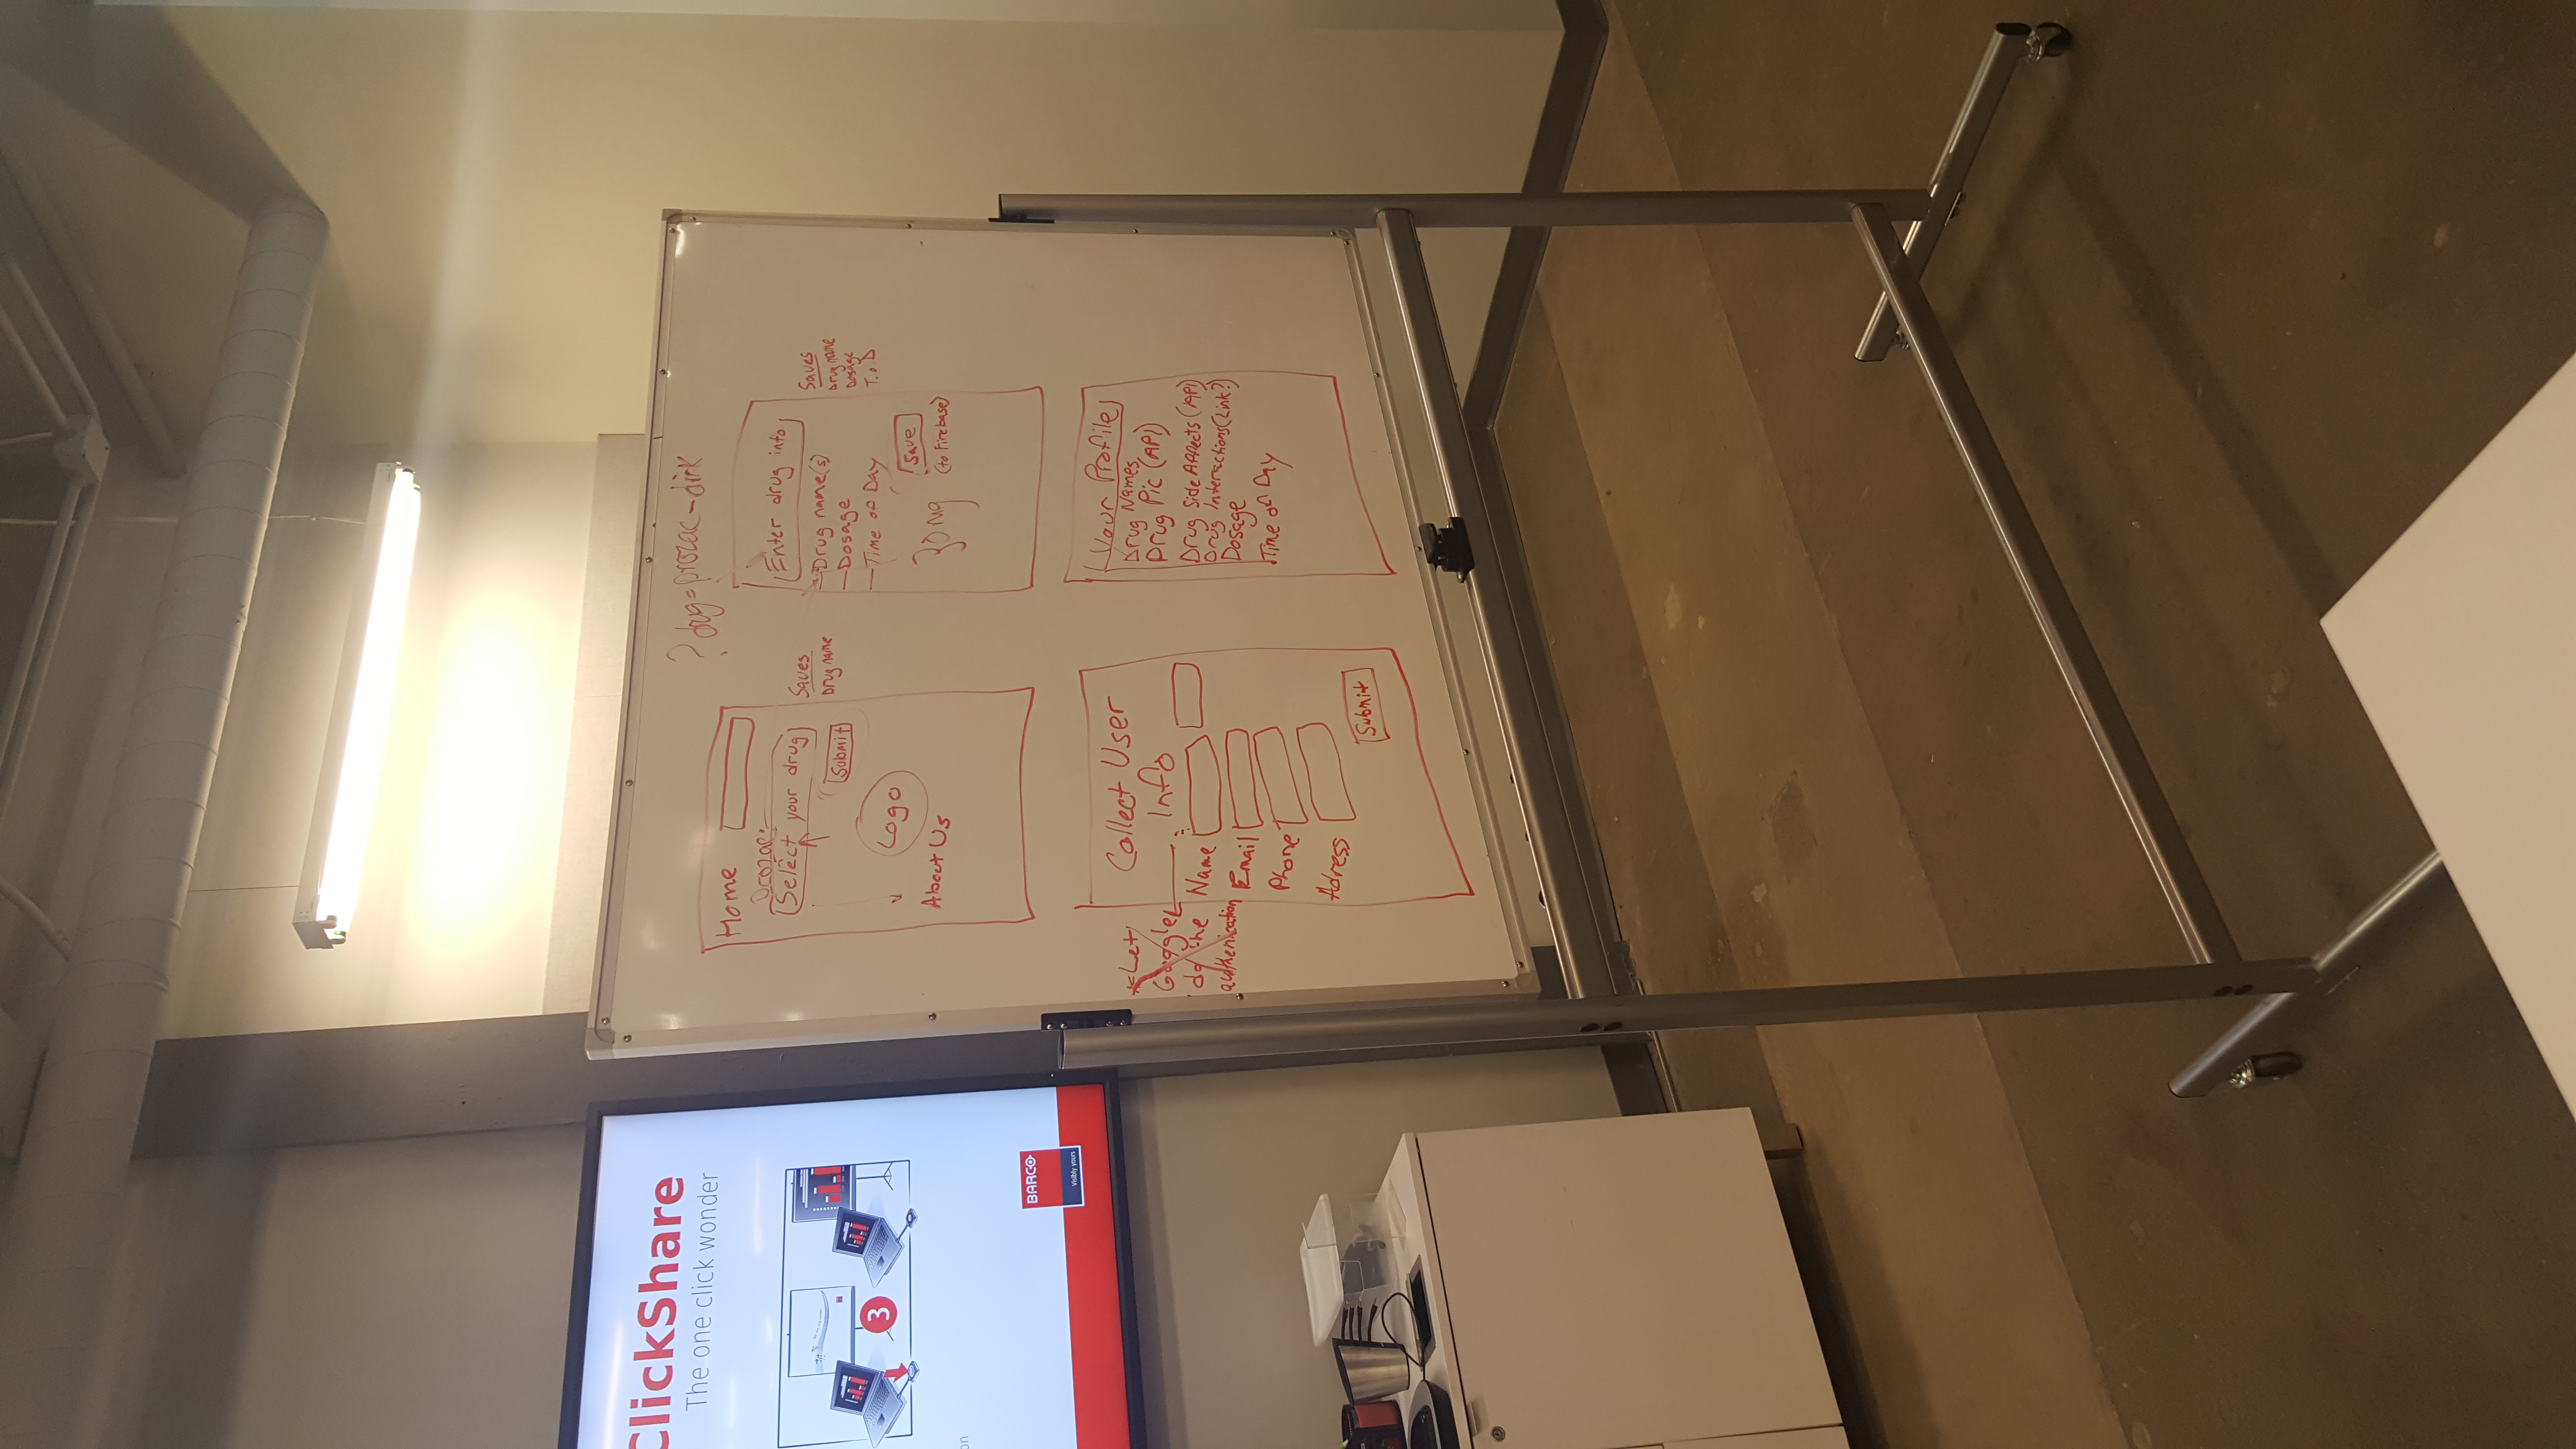 ClickShare
The one click wonder
3
on
BARCO
Visibly yours
? drug=prozac-dirk
Home
Prozac
Select your drug
Submit
Logo
About Us
Saves
Drug name
Enter drug info
Drug name(s)
Dosage
Time of Day
30 mg
Save
(to Firebase)
Saves
Drug name
Dosage
T.o D
*Let
Google
do the
authenication
Collect User
Info
Name
Email
Phone
Adress
Submit
Your Profile
Drug Names
Drug Pic (API)
Drug Side Affects (API)
Drug Interactions (Link?)
Dosage
Time of Day